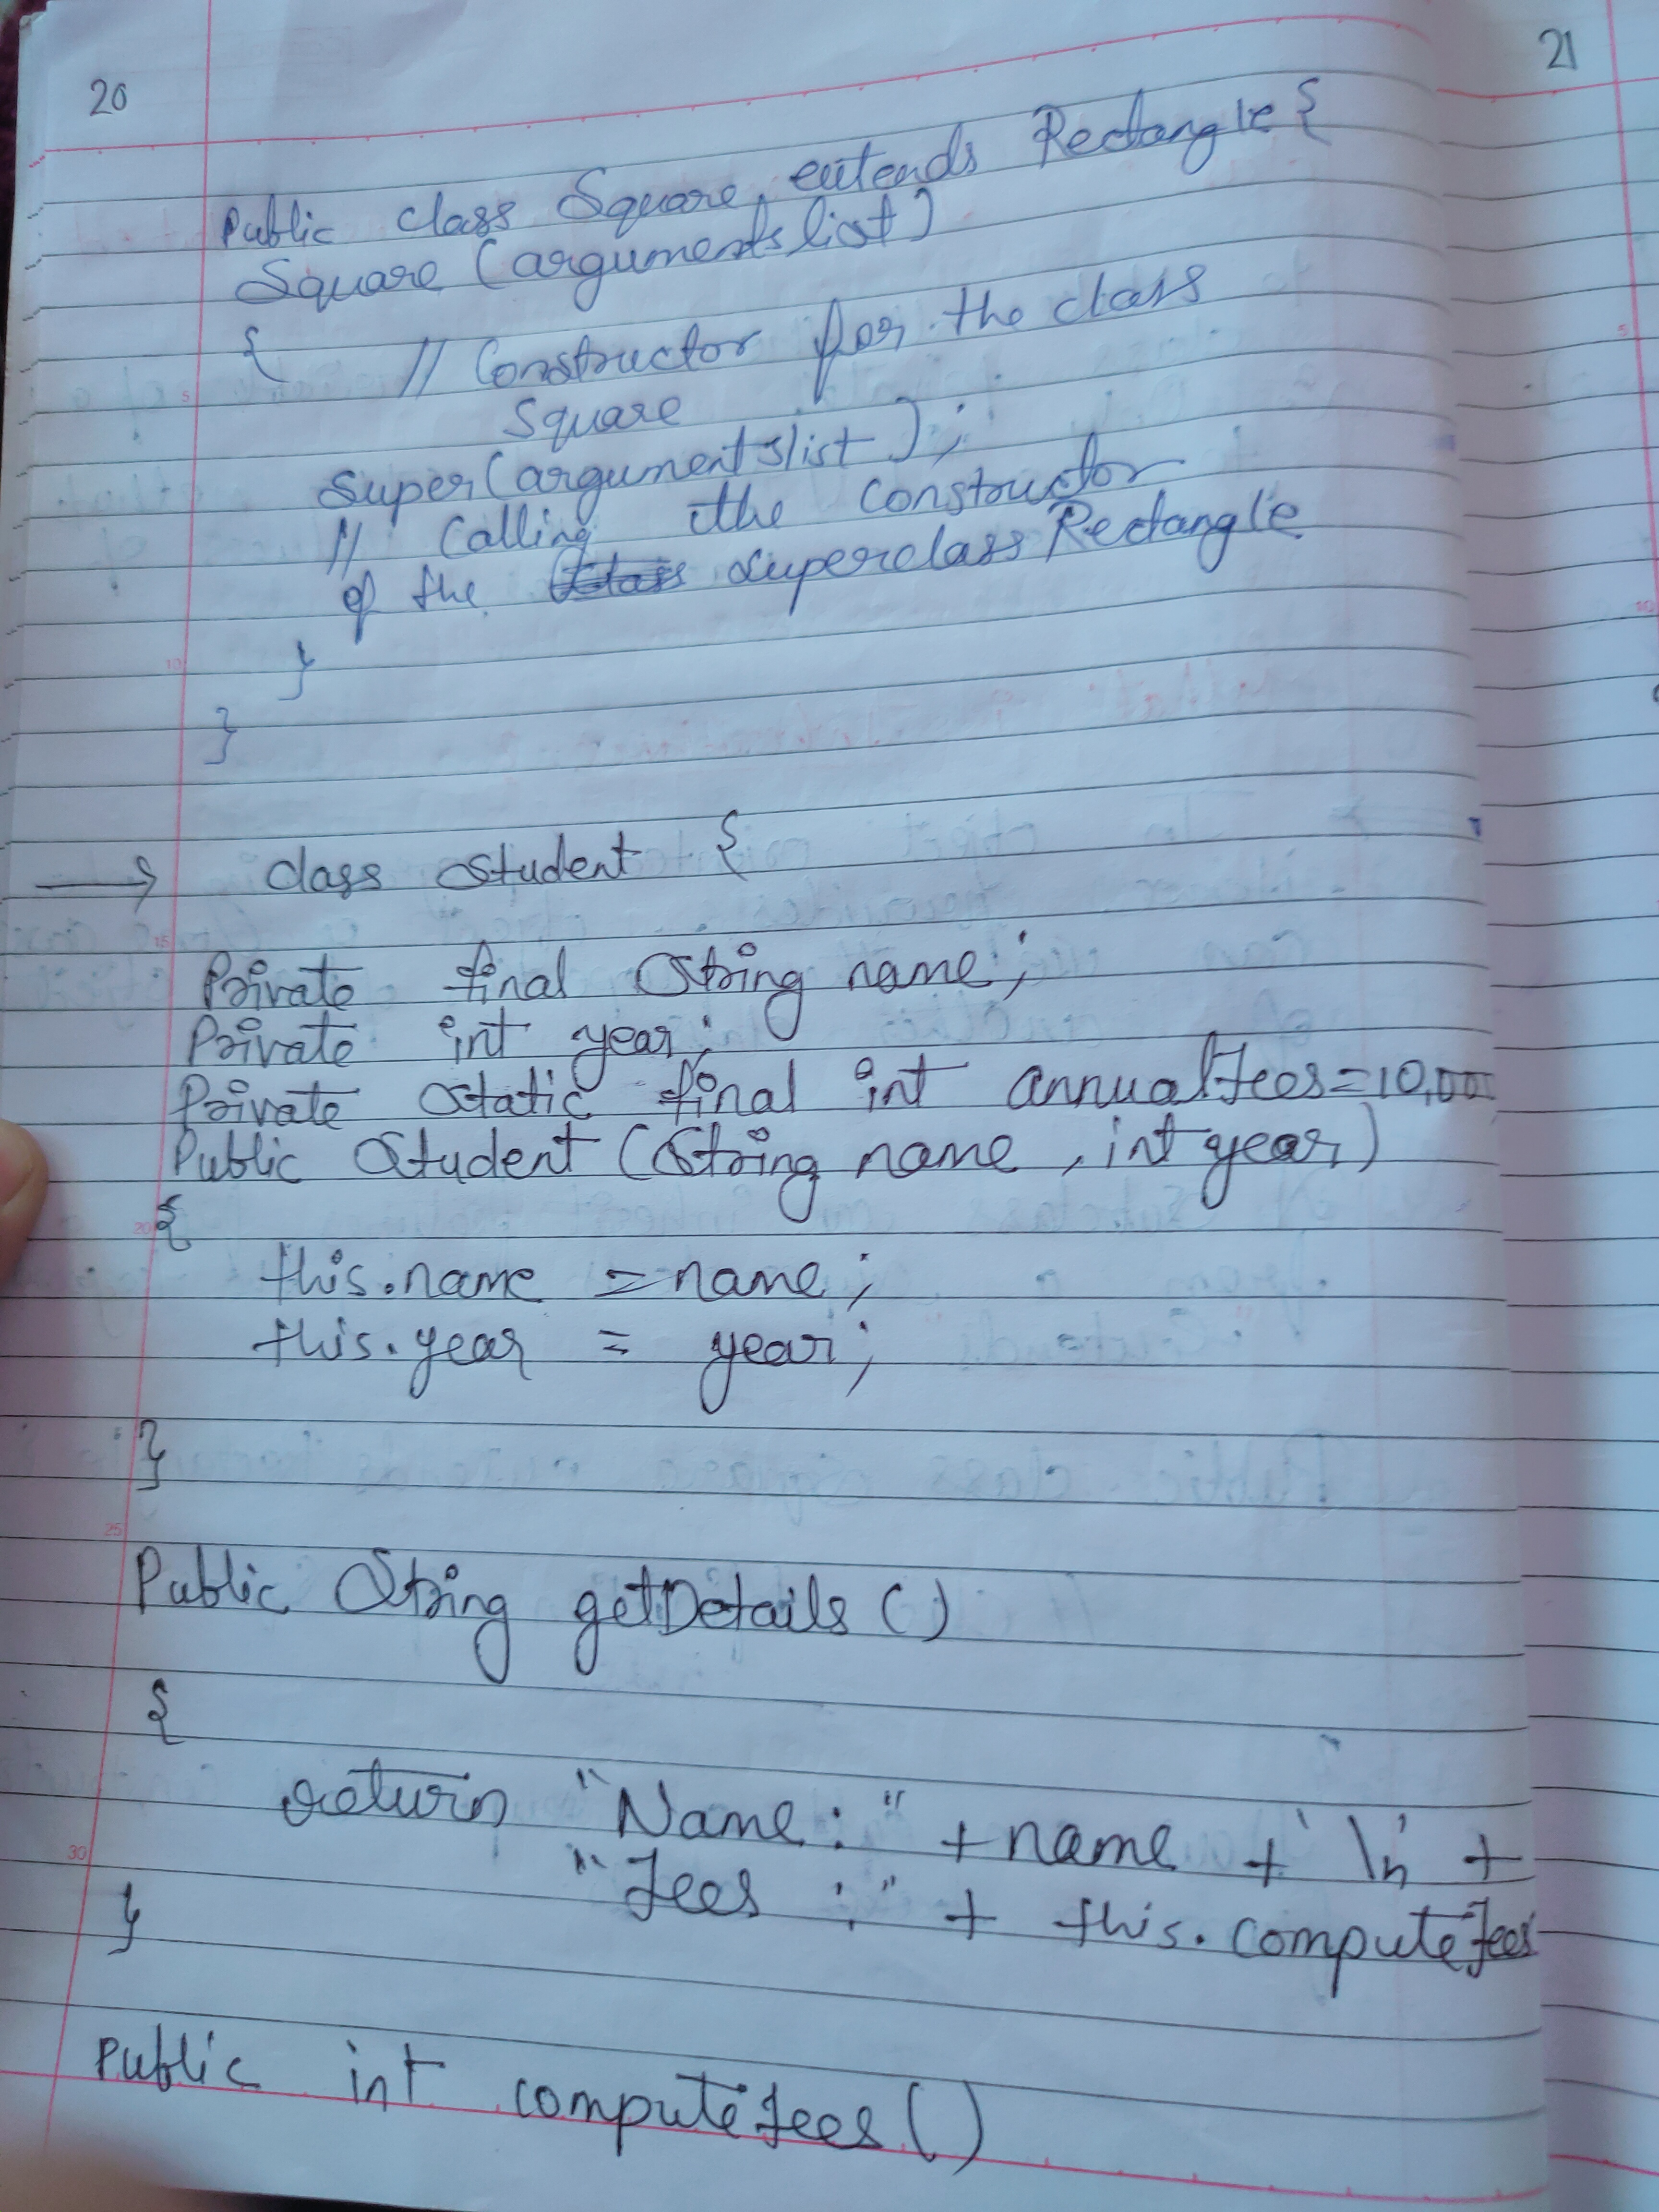 20
21
Public class Square extends Rectangle {
Square (arguments list)
{ // Constructor for the class
Square
super(arguments list);
// Calling the constructor
of the superclass Rectangle
}
}
→ class Student {
Private final String name;
Private int year;
Private static final int annualFees=10,00
Public Student (String name, int year)
{
this.name = name;
this.year = year;
}
Public String getDetails ()
{
return "Name:" + name + '\n' +
"Fees :" + this.computefees
}
Public int computefees ()
5
10
15
20
25
30
5
10